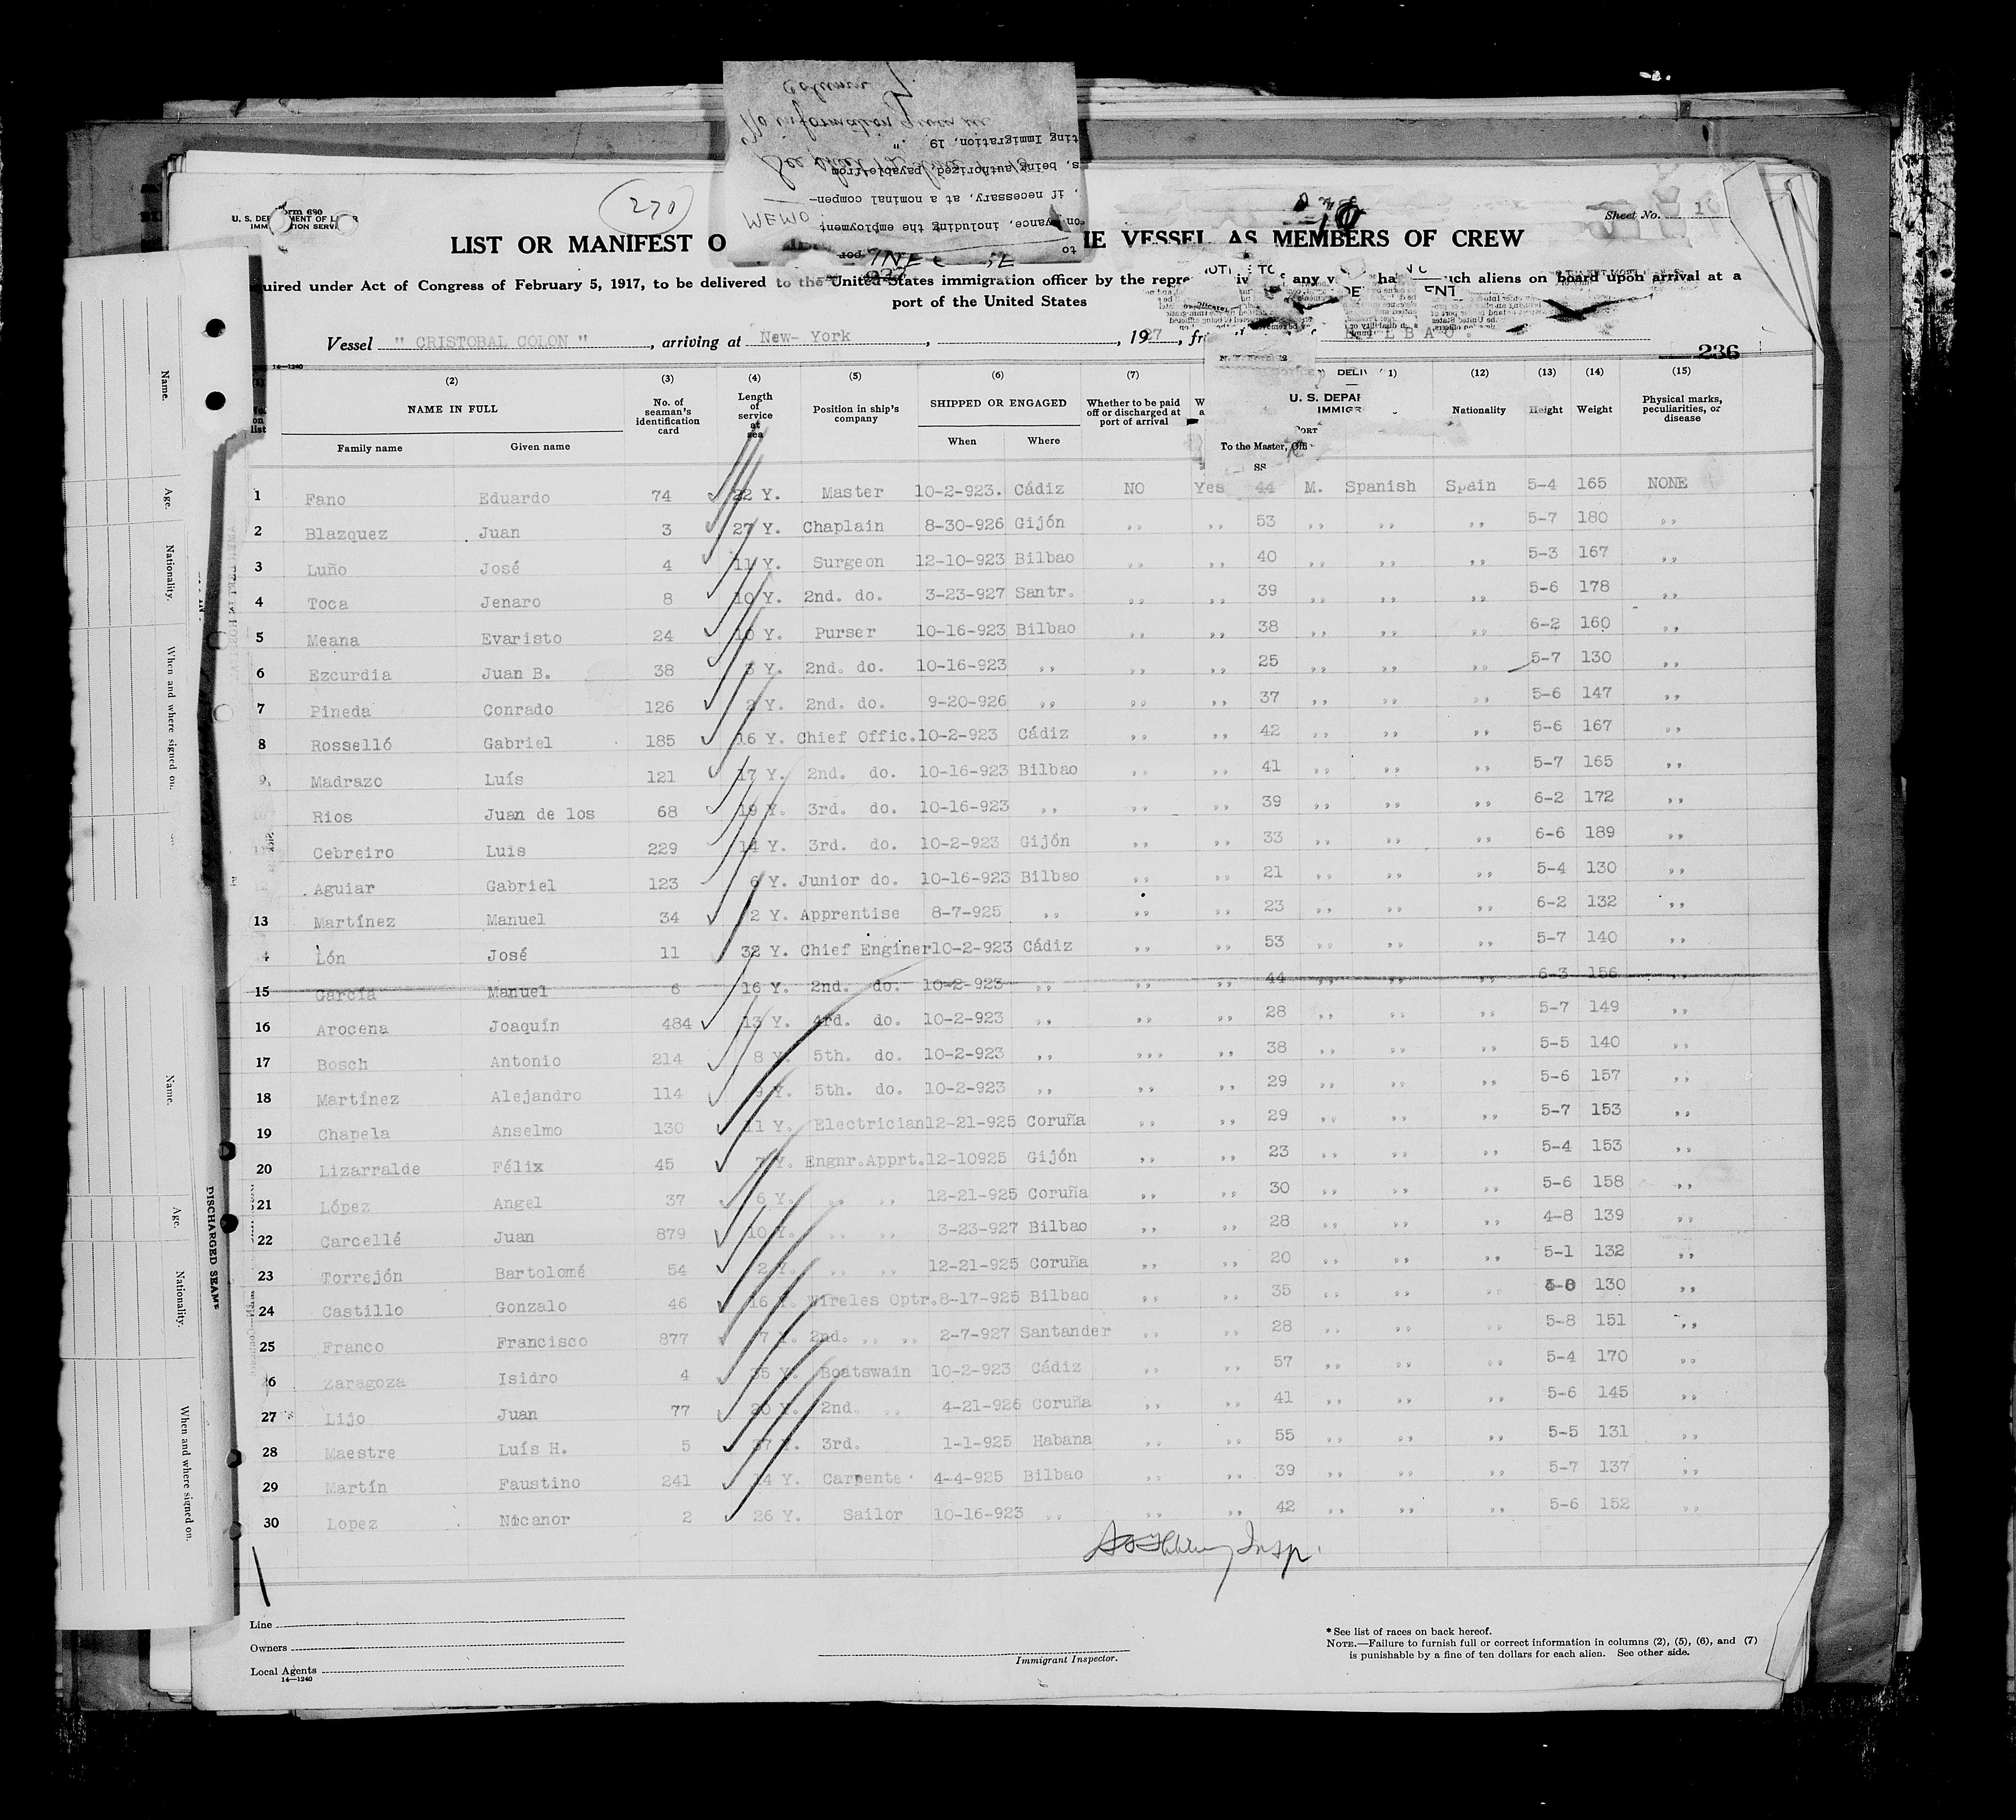 270
Form 680
U. S. DEPARTMENT OF LABOR
IMMIGRATION SERVICE
Sheet No. 10
MEMO
No information given in
column
ting Immigration, 19 ."
s, being authorized, payable from
, if necessary, at a nominal compen-
on yance, including the employment
to
LIST OR MANIFEST O THE VESSEL AS MEMBERS OF CREW
uired under Act of Congress of February 5, 1917, to be delivered to the United States immigration officer by the repre any uch aliens on board upon arrival at a
port of the United States
Vessel " CRISTOBAL COLON ", arriving at New- York, , 1927, fr B I L B A O .
236
14—1240
(1) (2) (3) (4) (5) (6) (7) (12) (13) (14) (15)
No. on list NAME IN FULL No. of seaman's identification card Length of service at sea Position in ship's company SHIPPED OR ENGAGED Whether to be paid off or discharged at port of arrival Nationality Height Weight Physical marks, peculiarities, or disease
Family name Given name When Where
U. S. DEPAR
IMMIGR
PORT
To the Master,
SS
1 Fano Eduardo 74 22 Y. Master 10-2-923. Cádiz NO Yes 44 M. Spanish Spain 5-4 165 NONE
2 Blazquez Juan 3 27 Y. Chaplain 8-30-926 Gijón ,, ,, 53 ,, ,, ,, 5-7 180 ,,
3 Luño José 4 11 Y. Surgeon 12-10-923 Bilbao ,, ,, 40 ,, ,, ,, 5-3 167 ,,
4 Toca Jenaro 8 10 Y. 2nd. do. 3-23-927 Santr. ,, ,, 39 ,, ,, ,, 5-6 178 ,,
5 Meana Evaristo 24 10 Y. Purser 10-16-923 Bilbao ,, ,, 38 ,, ,, ,, 6-2 160 ,,
6 Ezcurdia Juan B. 38 3 Y. 2nd. do. 10-16-923 ,, ,, ,, 25 ,, ,, ,, 5-7 130 ,,
7 Pineda Conrado 126 2 Y. 2nd. do. 9-20-926 ,, ,, ,, 37 ,, ,, ,, 5-6 147 ,,
8 Rosselló Gabriel 185 16 Y. Chief Offic. 10-2-923 Cádiz ,, ,, 42 ,, ,, ,, 5-6 167 ,,
9 Madrazo Luís 121 17 Y. 2nd. do. 10-16-923 Bilbao ,, ,, 41 ,, ,, ,, 5-7 165 ,,
Rios Juan de los 68 19 Y. 3rd. do. 10-16-923 ,, ,, ,, 39 ,, ,, ,, 6-2 172 ,,
Cebreiro Luis 229 14 Y. 3rd. do. 10-2-923 Gijón ,, ,, 33 ,, ,, ,, 6-6 189 ,,
Aguiar Gabriel 123 6 Y. Junior do. 10-16-923 Bilbao ,, ,, 21 ,, ,, ,, 5-4 130 ,,
13 Martínez Manuel 34 2 Y. Apprentise 8-7-925 ,, ,, ,, 23 ,, ,, ,, 6-2 132 ,,
4 Lón José 11 32 Y. Chief Enginer 10-2-923 Cádiz ,, ,, 53 ,, ,, ,, 5-7 140 ,,
15 García Manuel 6 16 Y. 2nd. do. 10-2-923 ,, ,, ,, 44 ,, ,, ,, 6-3 156 ,,
16 Arocena Joaquín 484 13 Y. 4rd. do. 10-2-923 ,, ,, ,, 28 ,, ,, ,, 5-7 149 ,,
17 Bosch Antonio 214 8 Y. 5th. do. 10-2-923 ,, ,,, ,, 38 ,, ,, ,, 5-5 140 ,,
18 Martínez Alejandro 114 9 Y. 5th. do. 10-2-923 ,, ,, ,, 29 ,, ,, ,, 5-6 157 ,,
19 Chapela Anselmo 130 11 Y. Electrician 12-21-925 Coruña ,, ,, 29 ,, ,, ,, 5-7 153 ,,
20 Lizarralde Félix 45 7 Y. Engnr.Apprt. 12-10925 Gijón ,, ,, 23 ,, ,, ,, 5-4 153 ,,
21 López Angel 37 6 Y. ,, ,, 12-21-925 Coruña ,, ,, 30 ,, ,, ,, 5-6 158 ,,
22 Carcellé Juan 879 10 Y. ,, ,, 3-23-927 Bilbao ,, ,, 28 ,, ,, ,, 4-8 139 ,,
23 Torrejón Bartolomé 54 2 Y. ,, ,, 12-21-925 Coruña ,, ,, 20 ,, ,, ,, 5-1 132 ,,
24 Castillo Gonzalo 46 16 Y. Wireles Optr. 8-17-925 Bilbao ,, ,, 35 ,, ,, ,, 5-8 130 ,,
25 Franco Francisco 877 7 Y. 2nd. ,, ,, 2-7-927 Santander ,, ,, 28 ,, ,, ,, 5-8 151 ,,
26 Zaragoza Isidro 4 35 Y. Boatswain 10-2-923 Cádiz ,, ,, 57 ,, ,, ,, 5-4 170 ,,
27 Lijo Juan 77 20 Y. 2nd. ,, 4-21-926 Coruña ,, ,, 41 ,, ,, ,, 5-6 145 ,,
28 Maestre Luís H. 5 37 Y. 3rd. 1-1-925 Habana ,, ,, 55 ,, ,, ,, 5-5 131 ,,
29 Martín Faustino 241 14 Y. Carpente 4-4-925 Bilbao ,, ,, 39 ,, ,, ,, 5-7 137 ,,
30 Lopez Nicanor 2 26 Y. Sailor 10-16-923 ,, ,, ,, 42 ,, ,, ,, 5-6 152 ,,
Insp.
Line
Owners
Local Agents
14—1240
Immigrant Inspector.
* See list of races on back hereof.
NOTE.—Failure to furnish full or correct information in columns (2), (5), (6), and (7)
is punishable by a fine of ten dollars for each alien. See other side.
Name.
Age.
Nationality.
When and where signed on.
Name.
Age.
Nationality.
When and where signed on.
DISCHARGED SEAME